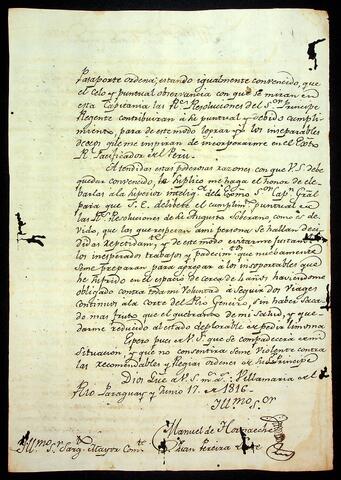 Pasaporte ordena; estando igualmente convencido, que
el celo y puntual observancia con que se miran en
esta Capitania las R.s Resoluciones del S.or Principe
Regente contribuiran à he puntual y debido cumpli-
miento, para de este modo lograr yo los inseparables
deseos que me inspiran de incorporarme en el Exto
R. Pacificador del Peru.
Atendidas estas poderosas razones con que V.S. debe
quedar convencido, le suplico me haga el honor de ele-
barlas a la superior Inteligª del Exmo S.or Cap.n Gral
para que S. E. delibere el cumplim.to puntual de
las R.s Resoluciones de he Augusto Soberano como es de-
vido, las que respecto ami persona se hallan deci-
didas repetidam.te y de este modo evitarme justam.te
los inesperados trabajos y padecim.tos que nuebamente
se me preparan para agregar à los insoportables que
he sufrido en el espacio de cerca de 4 años, haviendome
obligado contra toda mi Voluntad à seguir dos Viages
continuos ala Corte del Rio Geneiro, sin haber Saca-
do mas fruto que el quebranto de mi Salud, y que-
darme reducido al estado deplorable de pedir limosna
Espero pues de V. S. que se compadecerá de mi
situacion, y que no consentirá Seme Violente contra
las recomendables y Regias ordenes de he Principe
Dios Gue à V. S. m.s a.s Villamaria del
Rio Paraguay y Junio 17. de 1816
Ill.mo S.or
Manuel de
Juan Pereira
Ill.mo S.r Sarg.to Mayor Com.te